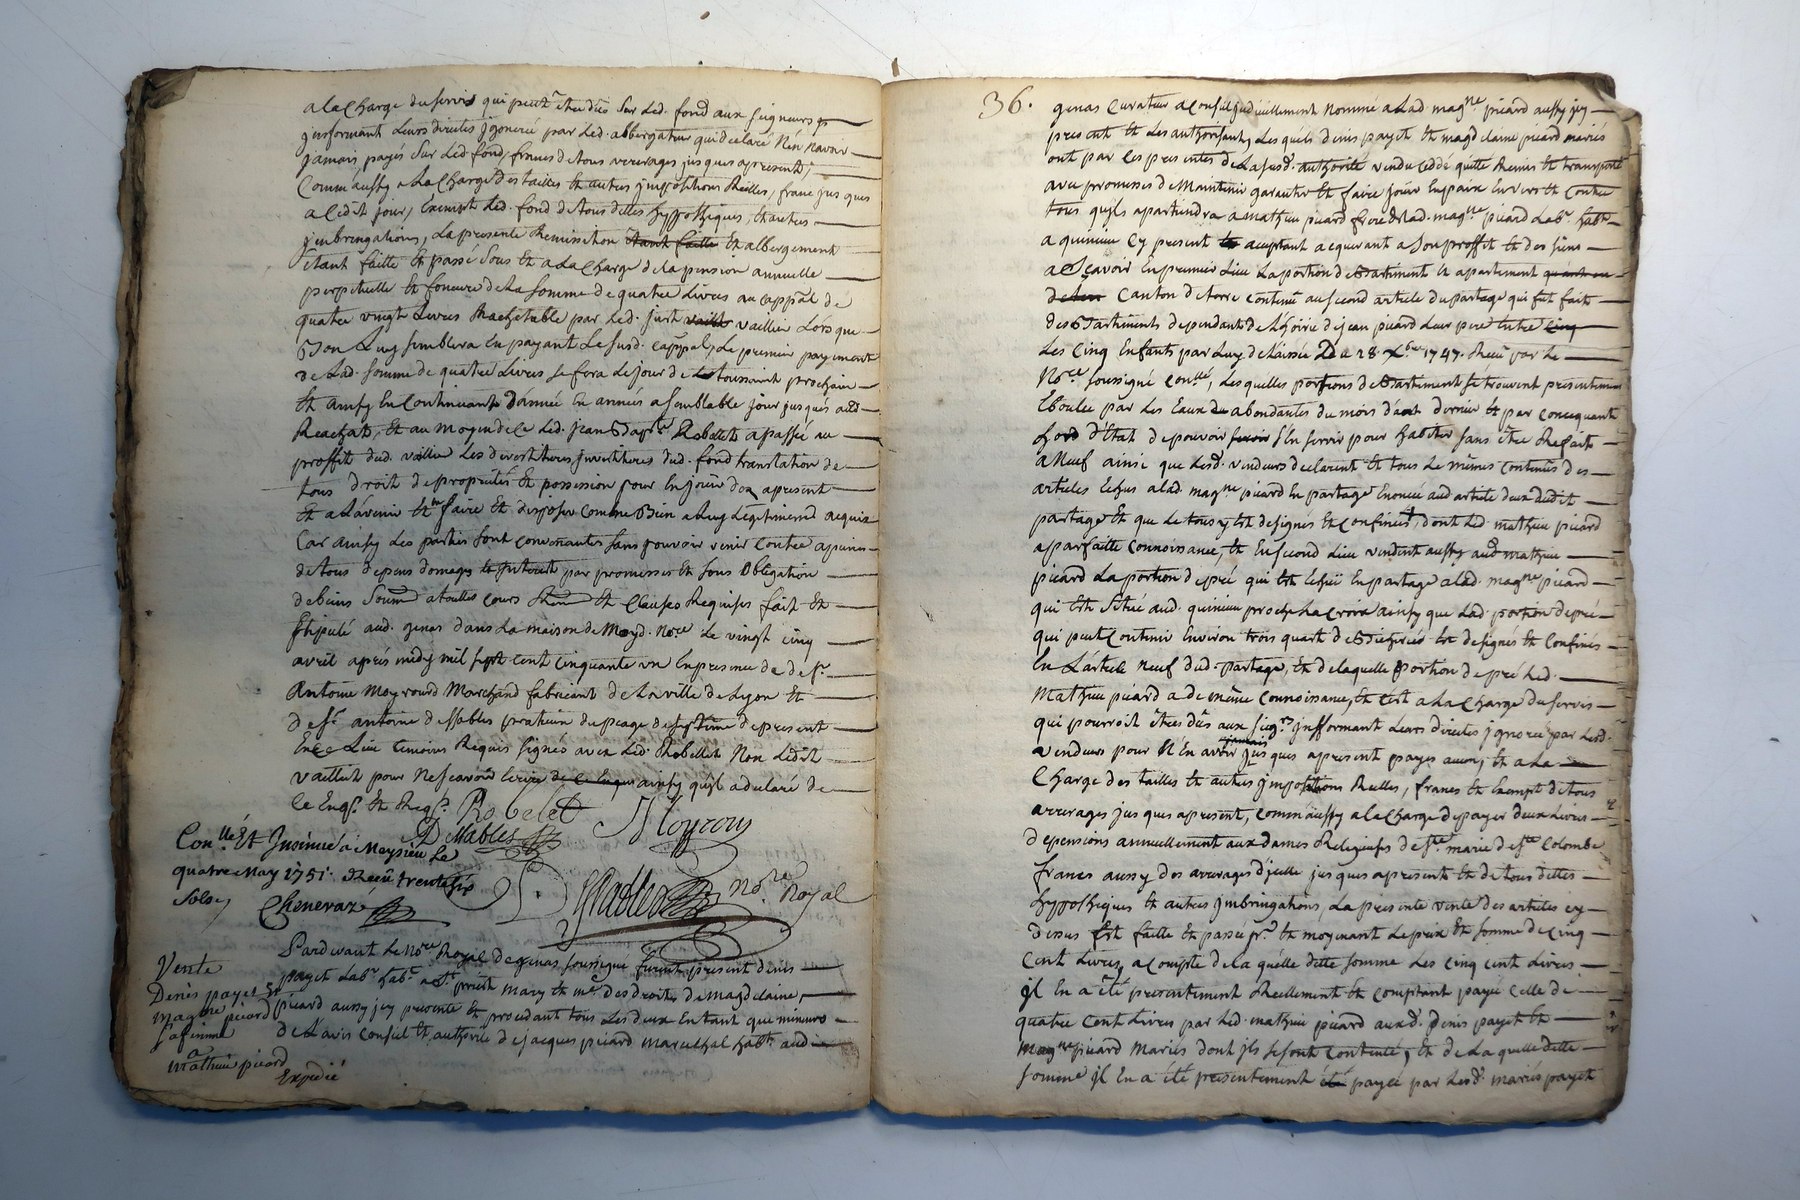 a la Charge du servis qui peut etre du Sur led. fond aux seigneurs
Jnformant Leurs directes Jgnorée par Led. albergataire qui declare N'en navoir
Jamais payés Sur Led. fond, francs de tous arrerages jusques apresent,
Comme aussy a La Charge des tailles et autres jmpositions Reelles, franc jusques
a cedit jour, Exempt Led. fond de tous dettes hyppothiques, et autres
jmbringations, La presente Remission étant faitte et albergement
Etant faitte et passé Sous et a La Charge de la pension annuelle
perpetuelle et fonciere de la Somme de quatre Livres au cappal de
quatre vingt Livres Rachetable par Led. Just vaillet Lorsque
Bon Luy semblera En payant Le susd. cappal, Le premier payement
de Lad. Somme de quatre Livres se fera Le jour de toussaint prochain
et ainsy En continuant d'année En années a semblable jour jusques aud.
Reachat, et au moyen de ce Led. Jean Bapte Robellet a passée au
proffit dud. vaillet Les devestitures, jnvestitures dud. fond translation de
tous droit de proprietés et possession pour En jouir des apresent
et a L'avenir et faire et disposer comme Bien a Luy Legitimement acquis
Car ainsy Les parties sont convenantes sans pouvoir venir Contre a peine
de tous depens domages et Jnterets par promesses et sous obligation
de biens Soum a toutes cours Renon et clauses Requises fait et
Stipulé aud. genas dans La maison de Moyd. Nore Le vingt cinq
avril aprés midy mil sept cent cinquante un En presence de sr
Antoine Moyroud Marchand fabricant de La ville de Lyon et
de sr antoine dessables praticien du peage de Septême de present
En ce Lieu temoins Requis signés avec Led. Robellet Non Ledit
vaillet pour Ne sçavoir Ecrire de ce Enquis ainsy qu'jl a declaré de
ce Enqs. et Reqs. Robelet Moyroud
DeSsables
Conllé Et Jnsinué a Meysieu Le
quatre May 1751. Receu trente six
sols Cheneraz
Nore Royal
Vente
Denis payet et
magne picard
sa femme
a
mathieu picard
Expedié
Pardevant Le Nore Royal de genas soussigné furent present denis
payet Labr habt a St. priest mary et me des droits de magdelaine
picard aussy jcy presente et procedant tous Les deux En tant que mineurs
de L'avis conseil et authorité de jacques picard marechal habt. aud.
36.
genas Curateur a conseil judiciellement Nommé a Lad. magne picard aussy jcy
present et Les authorisant, Les quels denis payet et magdelaine picard mariés
ont par ces presentes de La susd. authorité vendu cedé quitté Remis et transporté
avec promesses de Maintenir garantir et faire jouir En paix Envers et Contre
tous qu'jls apartiendra a mathieu picard frere de Lad. magne picard Labr. habt.
a quinieu Cy present et acceptant acquerant a Son proffit et des siens
a Sçavoir En premier Lieu La portion de Batiment et apartement
Canton d'astre contenu au second article du partage qui fut fait
des Batiments dependant de L'hoirie de jean picard Leur pere Entre
Les Cinq Enfants par Luy delaissés Du 28. Xbre 1747. Receu par Le
Nore soussigné conllé, Lesquelles portions de Batiment se trouvent presentement
Eboulée par Les Eaux abondantes du mois d'aout dernier et par consequent
hors d'Etat de pouvoir s'En servir pour habiter sans être Refait
a Neuf ainsi que Lesd. vendeurs declarent et tous Le mêmes contenus des
articles Echus a lad. magne picard En partage Enoncée aud. article deux dudit
partage et que Le tous y est designés et confinés, dont Led. mathieu picard
a parfaitte connoissance, et En second Lieu vendent aussy aud. mathieu
picard La portion de pré qui est Echeü En partage a lad. magne picard
qui est Située aud. quinieu proche La croix ainsy que Lad. portion de pré
qui peut contenir Environ trois quart de Bicherée est designés et confinés
En L'article neuf dud. partage, et de laquelle portion de pré Led.
Mathieu picard a de même connoissance, et c'est a La charge du servis
qui pourroit êtres dûs aux seigrs jnfformant Leurs directes jgnorée par Lesd.
vendeurs pour N'En avoir jamais jusques apresent payes aucun, et a La
Charge des tailles et autres jmpositions Reelles, francs et Exempt de tous
arrerages jusques apresent, comme aussy a la charge de payer deux Livres
de pensions annuellement aux dames Religieuses de ste marie de ste Colombe
francs aussy des arrerages d'jcelle jusques apresent et de tous dettes
hyppothiques et autres jmbringations, La presente vente des articles cy
dessus Est faitte et passée pr. et moyenant Le prix et somme de cinq
cent Livres, a compte de la quelle dette somme Les cinq cent Livres
jl En a été presentement Reellement et comptant payée celle de
quatre cent Livres par Led. mathieu picard auxd. denis payet et
magne picard Mariés dont jls se sont contenté, et de La quelle dette
somme jl En a été presentement payée par Lesd. mariés payet